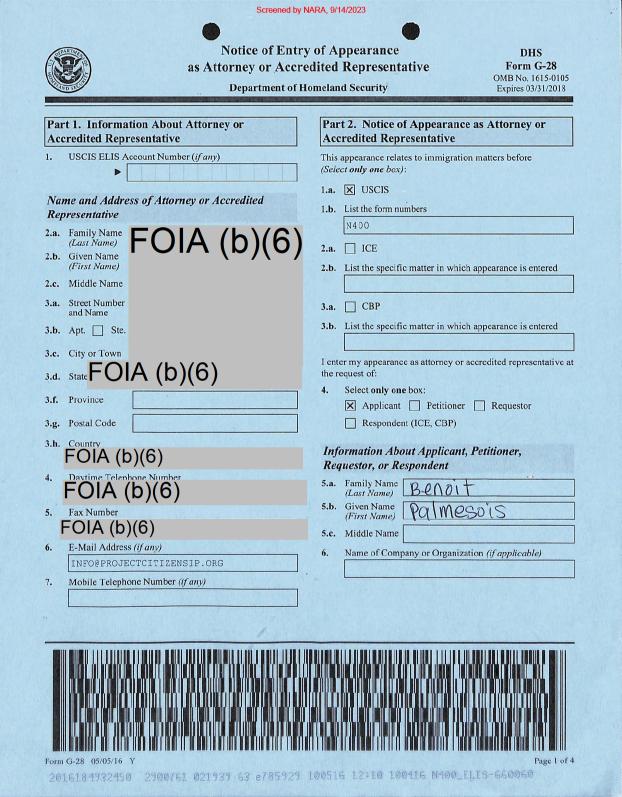 Screened by NARA, 9/14/2023
Notice of Entry of Appearance
as Attorney or Accredited Representative
Department of Homeland Security
DHS
Form G-28
OMB No. 1615-0105
Expires 03/31/2018
Part 1. Information About Attorney or
Accredited Representative
1. USCIS ELIS Account Number (if any)
Name and Address of Attorney or Accredited
Representative
2.a. Family Name
(Last Name)
FOIA (b)(6)
2.b. Given Name
(First Name)
2.c. Middle Name
3.a. Street Number
and Name
3.b. Apt. Ste.
3.c. City or Town
3.d. State FOIA (b)(6)
3.f. Province
3.g. Postal Code
3.h. Country
FOIA (b)(6)
4. Daytime Telephone Number
FOIA (b)(6)
5. Fax Number
FOIA (b)(6)
6. E-Mail Address (if any)
INFO@PROJECTCITIZENSIP.ORG
7. Mobile Telephone Number (if any)
Part 2. Notice of Appearance as Attorney or
Accredited Representative
This appearance relates to immigration matters before
(Select only one box):
1.a. X USCIS
1.b. List the form numbers
N400
2.a. ICE
2.b. List the specific matter in which appearance is entered
3.a. CBP
3.b. List the specific matter in which appearance is entered
I enter my appearance as attorney or accredited representative at
the request of:
4. Select only one box:
X Applicant Petitioner Requestor
Respondent (ICE, CBP)
Information About Applicant, Petitioner,
Requestor, or Respondent
5.a. Family Name
(Last Name)
Benoit
5.b. Given Name
(First Name)
Palmesois
5.c. Middle Name
6. Name of Company or Organization (if applicable)
Form G-28 05/05/16 Y
Page 1 of 4
100516 12:10 100416 N400_ELIS-660060